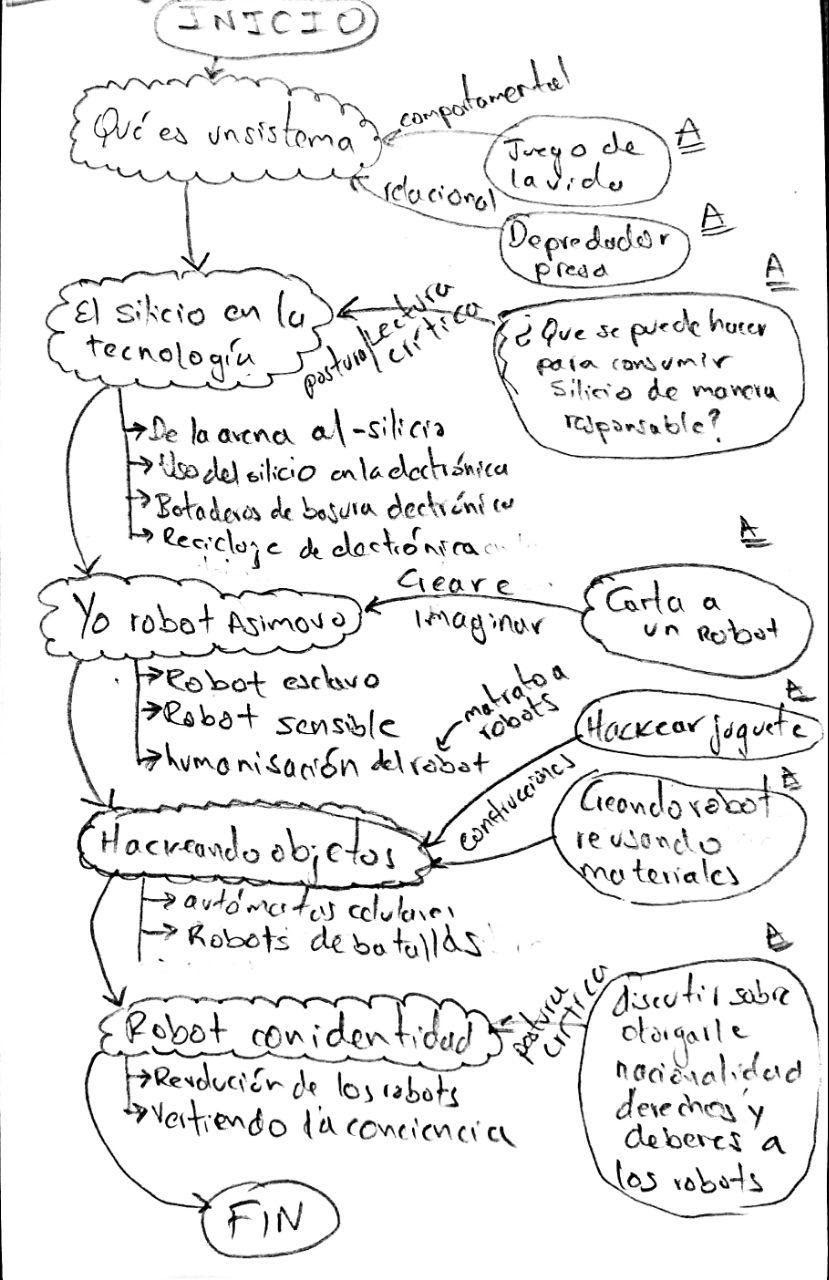 INICIO
Qué es un sistema
comportamental
Juego de
la vida
A
relacional
Depredador
presa
A
El silicio en la
tecnología
postura/Lectura
crítica
A
¿Que se puede hacer
para consumir
Silicio de manera
responsable?
→De la arena al-silicio
→Uso del silicio en la electrónica
→Botaderos de basura electrónica
→Reciclaje de electrónica
Yo robot Asimovo
Crear e
imaginar
A
Carta a
un Robot
→Robot esclavo
→Robot sensible
→humanisación del robot
matrato a
robots
A
Hackear juguete
construcciones
A
Creando robot
reusando
materiales
Hackeando objetos
→autómatas celulares
→Robots de batallas
Robot con identidad
postura
crítica
A
discutir sobre
otorgarle
nacionalidad
derechos y
deberes a
los robots
→Revolución de los robots
→Vertiendo la conciencia
FIN